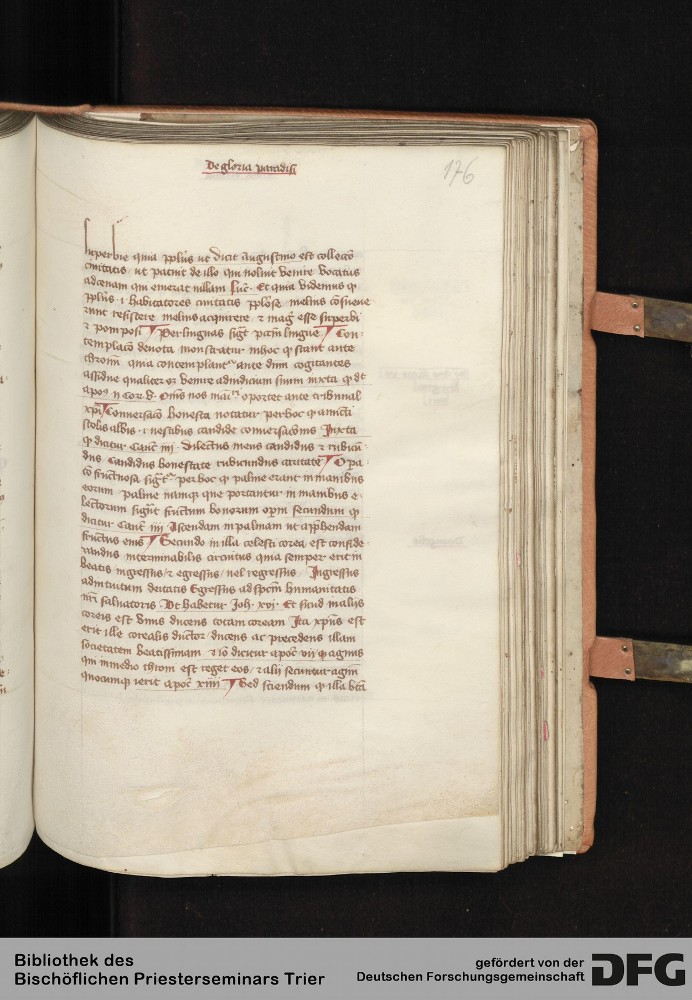 De gloria paradisi
176
superbie quia ppl'us ut dicit Augustinus est collectō
civitatis ut patuit de illo qui noluit venire vocatus
ad cenam qui emerat villam Luc. Et quia videmus q
ppl'us .i. habitatores civitatis pplose melius cōsueve
runt resistere melius acquirere et mag esse superbi
et pomposi Per linguas sigt lingue Con
templacō devota monstratur in hoc q stant ante
thronū quia contemplantr ante dnm cogitantes
assidue qualiter venire ad iudicium suum iuxta q dt
apos II cor. v. Oms nos oportet ante tribunal
xpi Conversacō honesta notatur per hoc q amicti
stolis albis .i. vestibus candide conversacōnis Iuxta
q dicitur Cant iiii Dilectus meus candidus et rubicū
dus Candidus honestate rubicundus caritate Opa
cō fructuosa sigtr per hoc q palme erant in manibus
eorum palme namq que portantur in manibus e
lectorum signt fructum bonorum opm secundum q
dicitur Cant iiii Ascendam in palmam ut apphendam
fructus eius Secundo in illa celesti corea est conside
randus interminabilis circuitus quia semper erit in
beatis ingressus et egressus vel regressus Ingressus
ad intuitum deitatis Egressus ad spcm humanitatis
nri salvatoris Ut habetur Joh. xvi. Et sicud in aliis
coreis est unus ducens totam coream Ita xpus est
erit ille corealis ductor ducens ac precedens illam
societatem beatissimam et iō dicitur apoc vii q agnus
qui in medio throni est reget eos et alii secuntur agnū
quocumq ierit apoc xiiii Sed sciendum q illa bta
Bibliothek des
Bischöflichen Priesterseminars Trier
gefördert von der
Deutschen Forschungsgemeinschaft
DFG